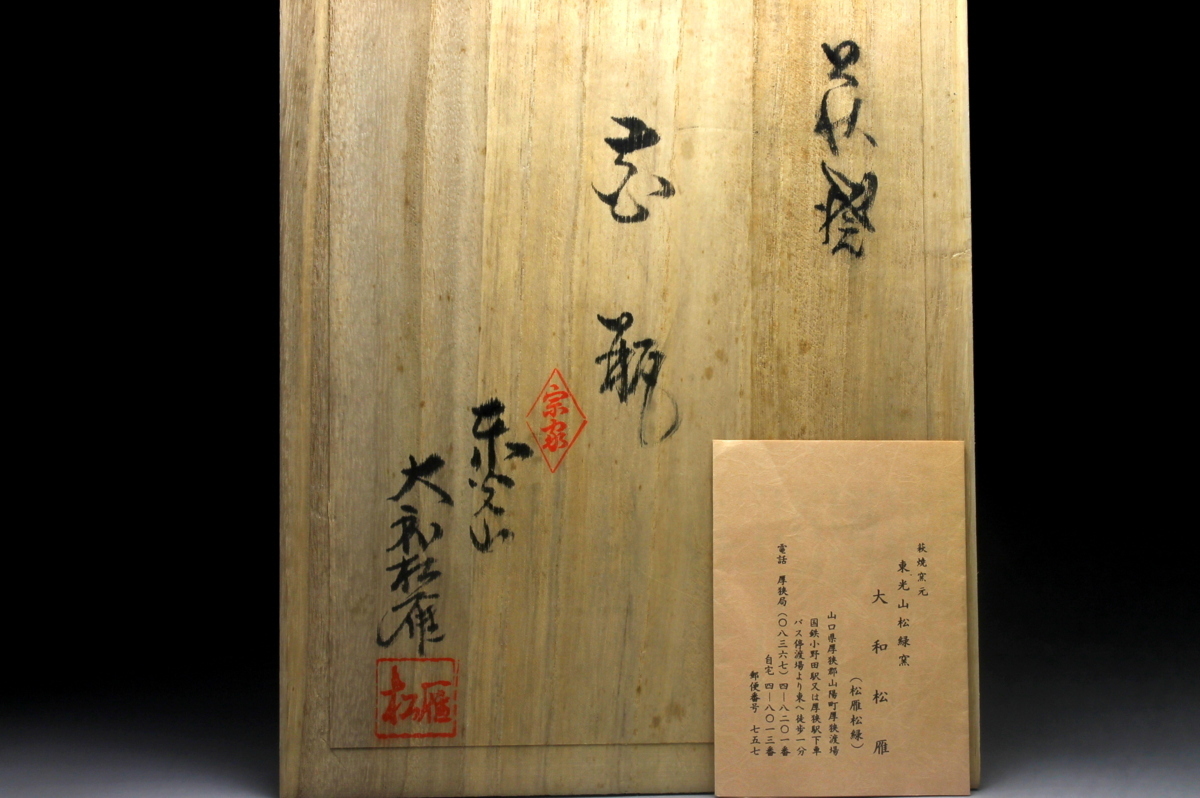 萩焼
花瓶
宗家
東光山
大和松雁
松雁
萩焼窯元
東光山松緑窯
大和松雁
(松雁松緑)
山口県厚狭郡山陽町厚狭渡場
国鉄小野田駅又は厚狭駅下車
バス停渡場より東へ徒歩一分
電話 厚狭局(〇八三六七)四―八二〇一番
自宅 四―八〇一三番
郵便番号 七五七